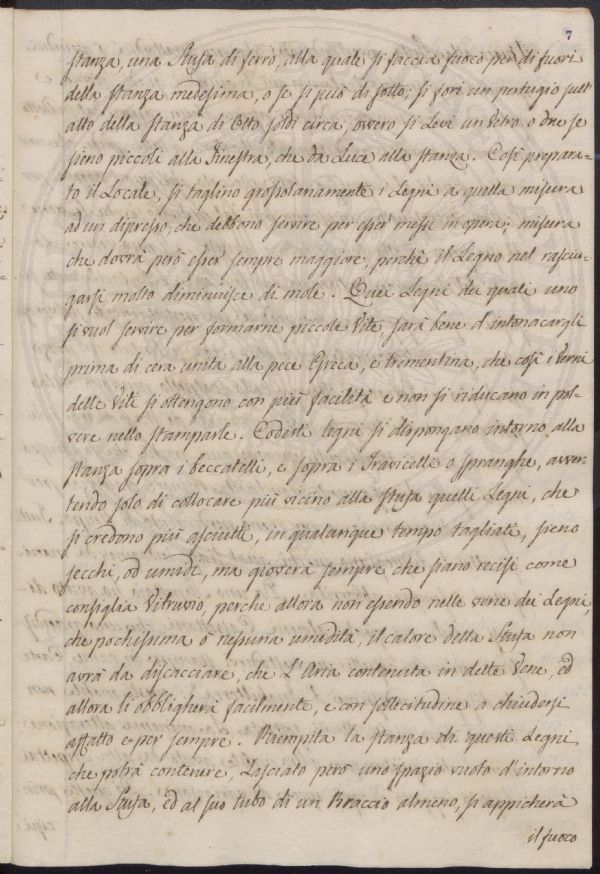 7
stanza, una Stufa di ferro, alla quale si faccia fuoco per di fuori
della stanza medesima, o se si può di sotto; si fori un pertugio sull'
alto della stanza di Otto soldi circa, ovvero si Levi un Vetro o due se
sieno piccoli alla Finestra, che dà Luce alla stanza. Così prepara=
to il Locale, si taglino grossolanamente i Legni a quella misura
ad un dipresso, che debbono servire per esser messi in opera; misura
che dovrà però esser sempre maggiore, perchè il Legno nel rasciu=
garsi molto diminuisce di mole. Quei Legni dei quali uno
si vuol servire per formarne piccole Vite, sarà bene d'intonacargli
prima di cera unita alla pece Greca, e trementina, che così i Vermi
delle Viti si ottengono con più facilità e non si riducano in pol=
vere nello stamparle. Codesti legni si dispongano intorno alla
stanza sopra i beccatelli, e sopra i Travicelli o spranghe, avver=
tendo solo di collocare più vicino alla stufa quelli Legni, che
si credono più asciutti, in qualunque tempo tagliati, sieno
secchi, od umidi, ma gioverà sempre che siano recisi come
consiglia Vitruvio, perchè allora non essendo nelle vene dei Legni,
che pochissima o nessuna umidità, il calore della Stufa non
avrà da discacciare, che L'Aria contenuta in dette Vene, ed
allora li obbligherà facilmente, e con sollecitudine a chiudersi
affatto e per sempre. Riempita la stanza di questi Legni
che potrà contenere, Lasciato però uno spazio vuoto d'intorno
alla Stufa, ed al suo tubo di un Braccio almeno, si appicherà
il fuoco